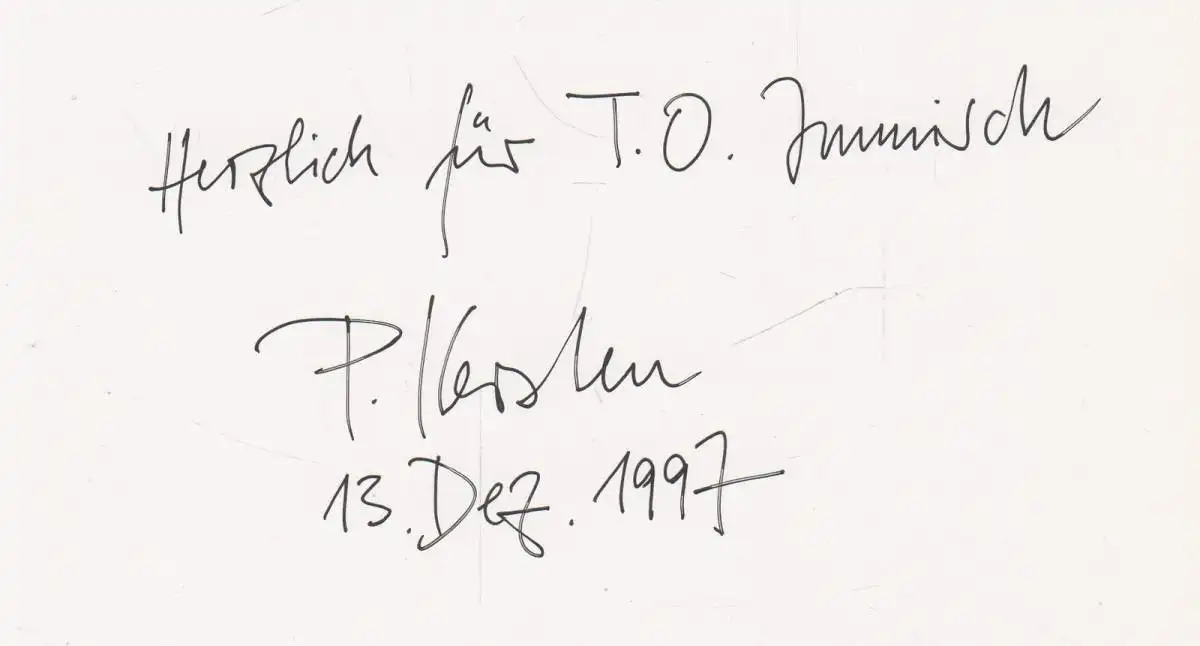 Herzlich für T.O. Immisch
P. Kersten
13. Dez. 1997